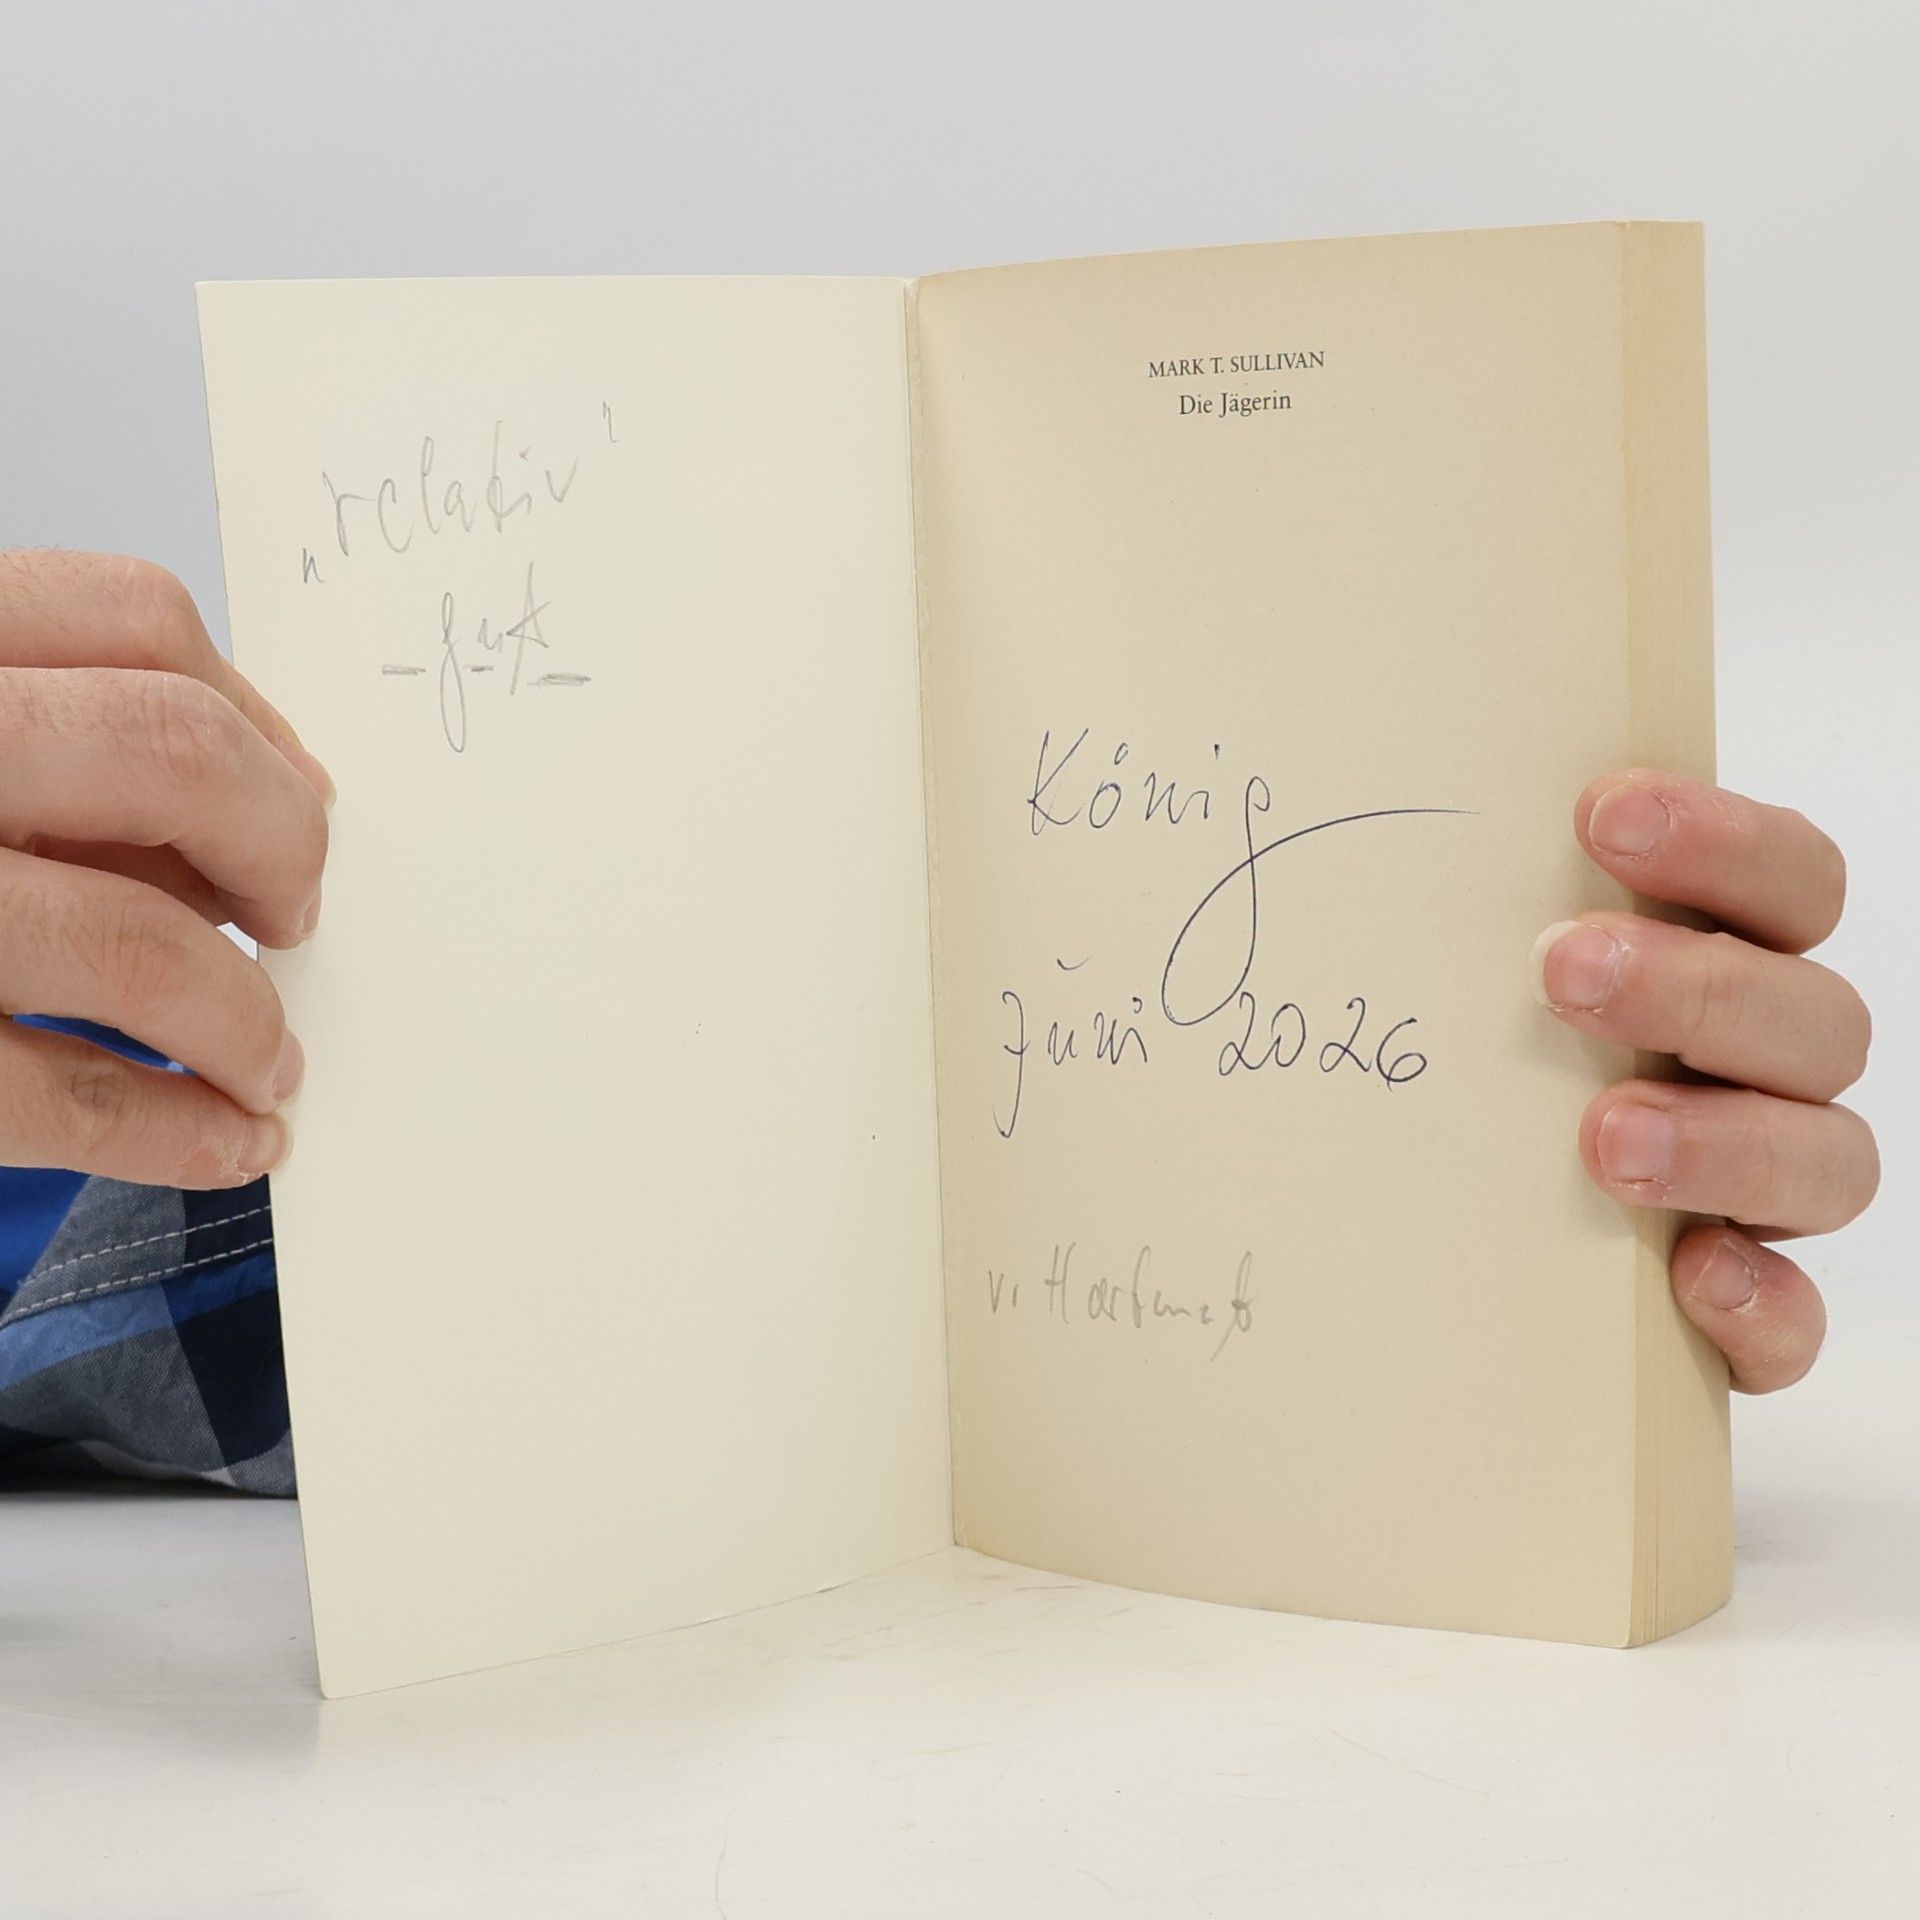 „relativ"
- gut -
MARK T. SULLIVAN
Die Jägerin
König
Juni 2026
v. Hartmut